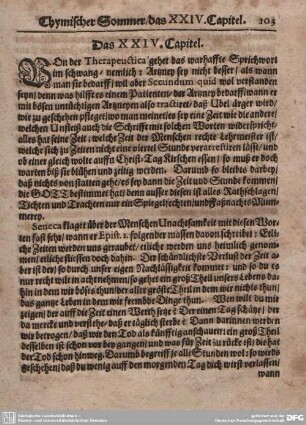 Chymischer Sommer/ das XXIV. Capitel. 203
Das XXIV. Capitel.
VOn der Therapeutica gehet das warhaffte Sprichwort
im schwang/ nemlich: Artzney sey nicht besser/ als wann
man sie bedarff/ und aber Secundum quid wol verstanden
seyn/ denn was hilffts einem Patienten/ der Artzney bedarff/ wann er
mit bösen untüchtigen Artzneyen also tractiret/ daß Ubel ärger wird/
wie zu geschehen pfleget/ wo man meinet/ es sey eine Zeit wie die andere/
welchen Unfleiß auch die Schrifft mit solchen Worten widerspricht:
alles hat seine Zeit: welche Zeit der Menschen rechte Lehrmeister ist/
welche sich zu Zeiten nicht eine viertel Stunde verarrestiren lässt/ und
ob einer gleich wolte auff n Christ-Tag Kirschen essen/ so muß er doch
warten biß sie blühen und zeitig werden. Darumb so bleibts darbey/
daß nichts von statten gehet/ es sey dann die Zeit und Stunde kommen/
die GOTT bestimmet hat/ denn ausser diesen ist alles Rathschlagen/
Tichten und Trachten nur ein Spiegelfechten/ und Faßnachts Mum-
merey.
Seneca klaget über der Menschen Unachtsamkeit mit diesen Wor-
ten fast sehr/ wann er Epist. 1. folgender massen davon schreibet: Etli-
che Zeiten werden uns geraubet/ etliche werden uns heimlich genom-
men/ etliche fliessen doch dahin. Der schändlichste Verlust der Zeit a-
ber ist der/ so durch unser eigen Nachlässigkeit kommet: und so du es
nur recht wilt in acht nehmen/ so gehet ein groß Theil unsers Lebens da-
hin in dem wir böses thun/ der allergröste Theil in dem wir nichts thun/
das gantze Leben in dem wir frembde Dinge thun. Wen wilt du mir
zeigen/ der auff die Zeit einen Werth setze? Der einen Tag schätze/ der
da mercke und verstehe/ daß er täglich sterbe? Dann darinnen werden
wir betrogen/ daß wir den Tod als künfftig anschauen: ein groß Theil
desselben ist schon vor bey gangen/ und was für Zeit zu rücke ist/ die hat
der Tod schon hinweg. Darumb begreiff ja alle Stunden wol: so wirds
geschehen/ daß du wenig auff den morgenden Tag dich wirst verlassen/
wann